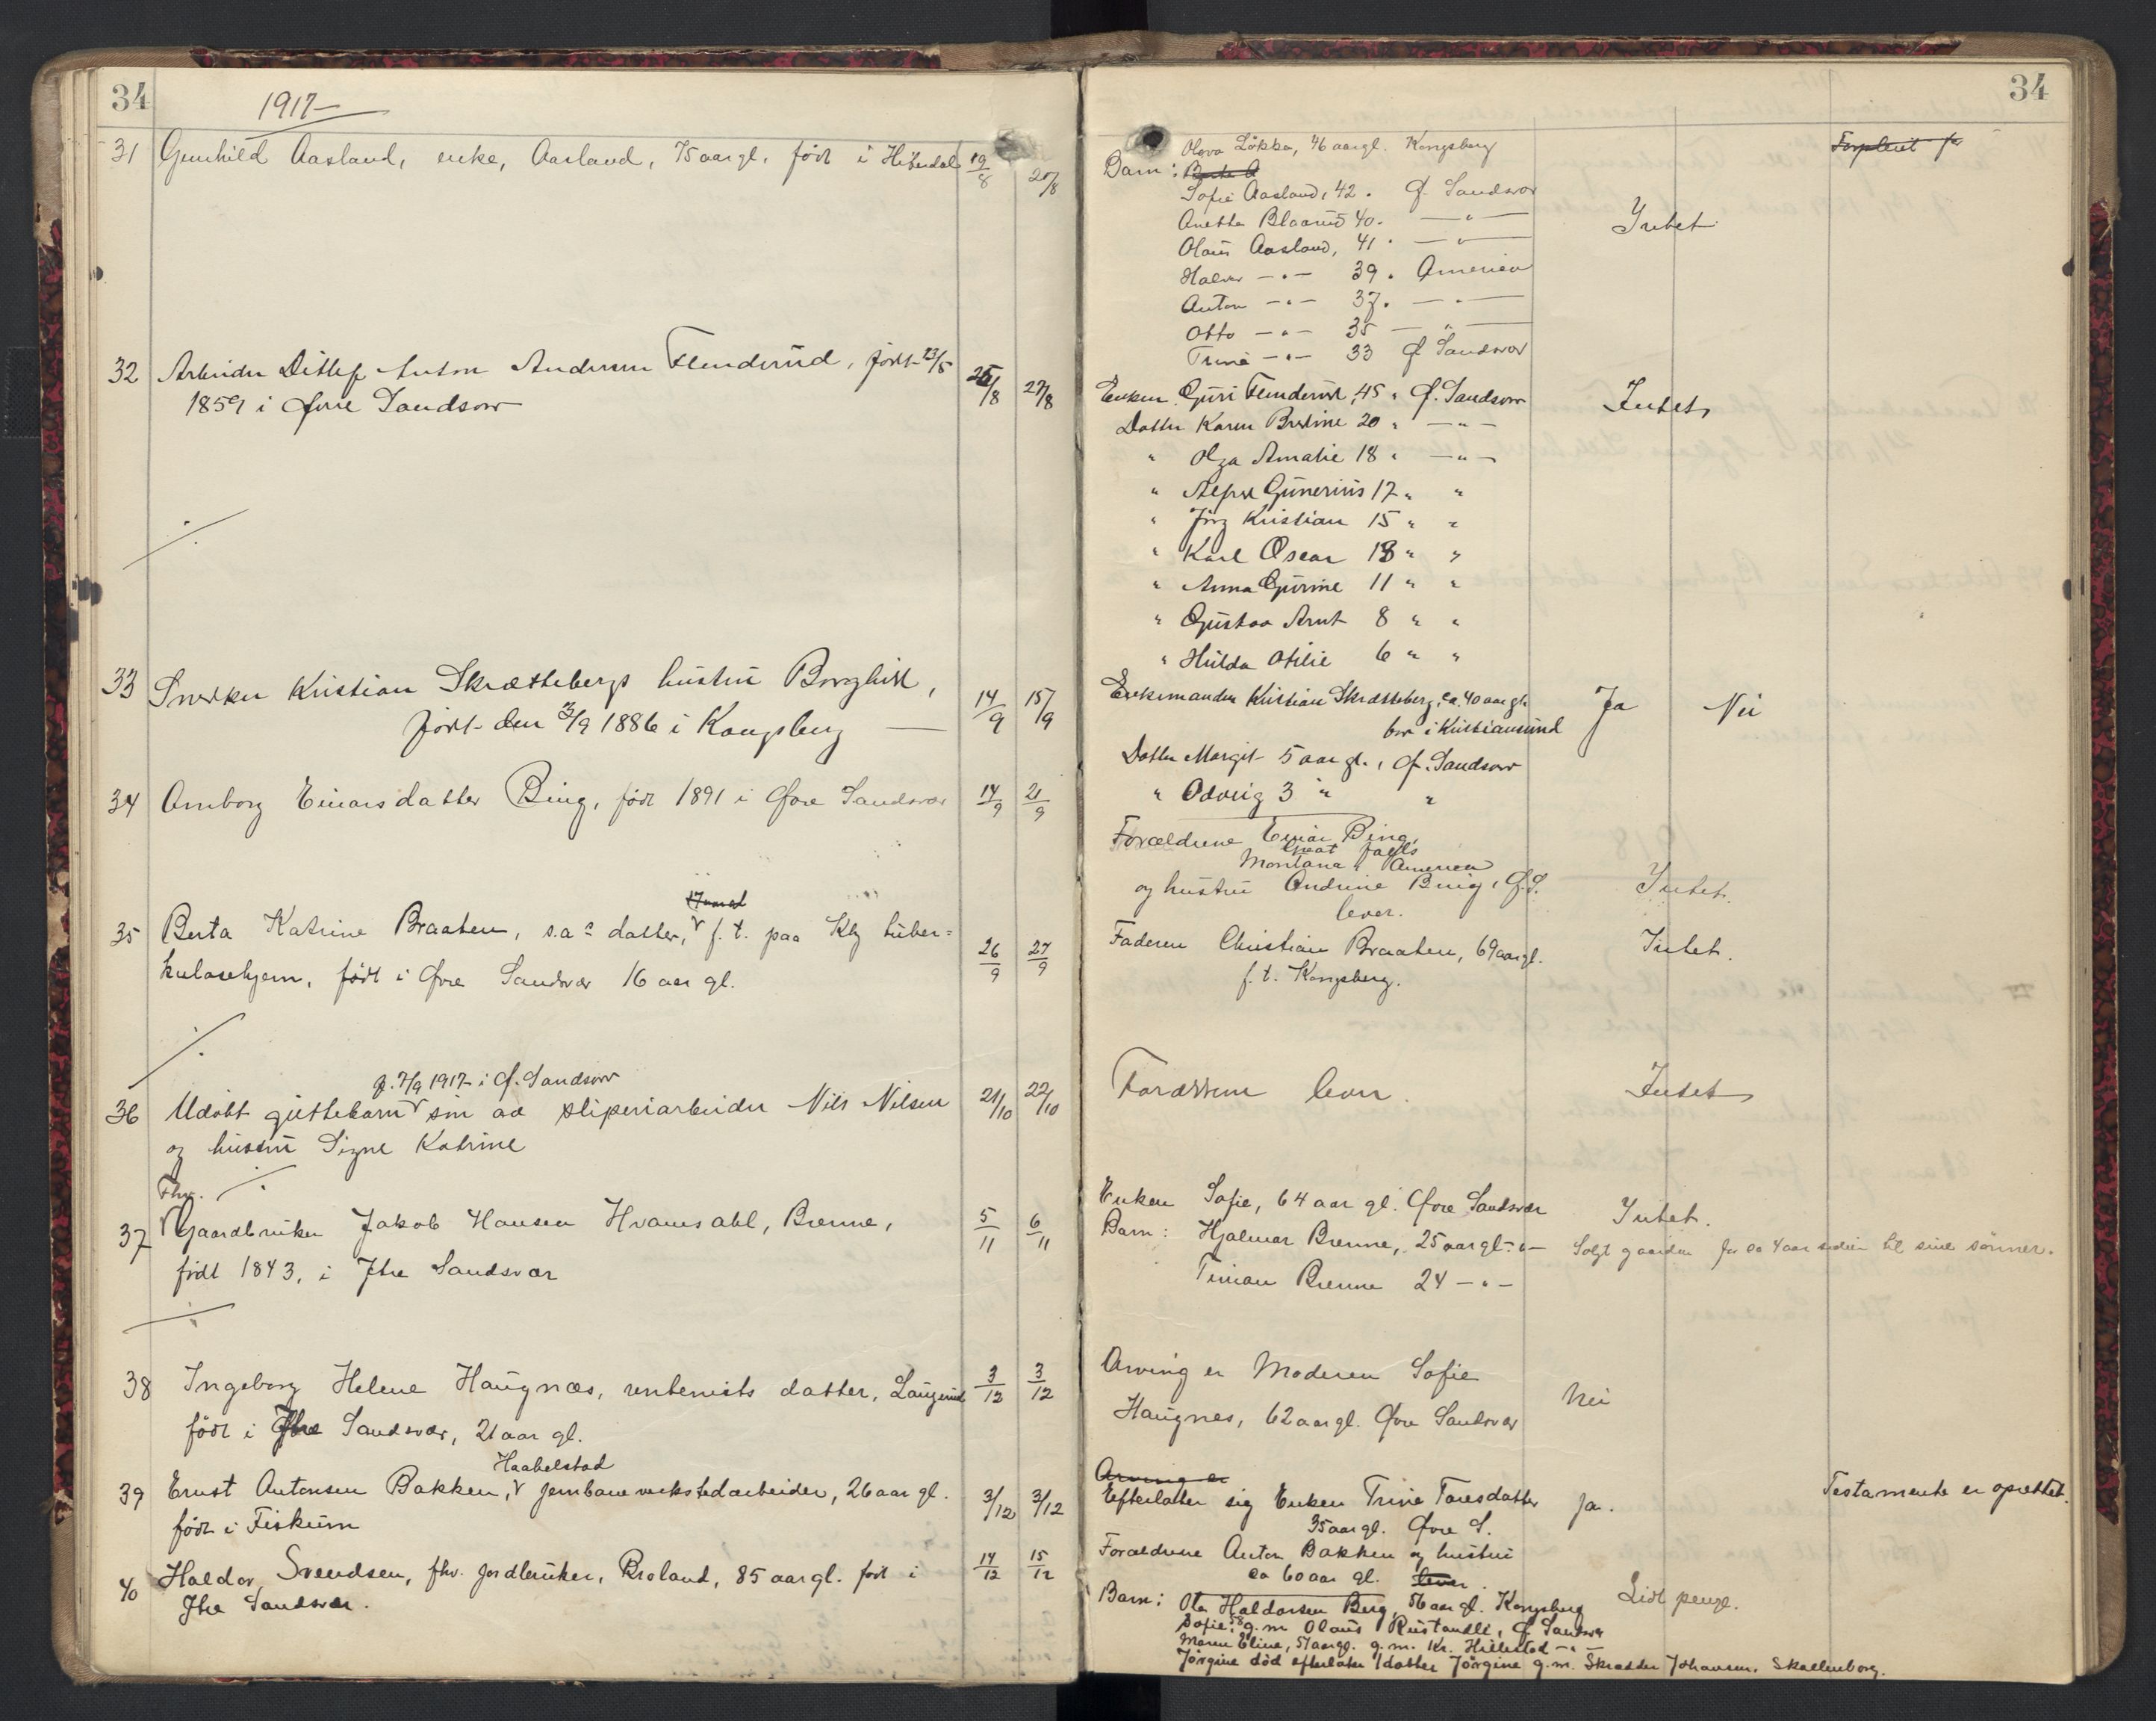 34
1917 —
31 Gunhild Aasland, enke, Aasland, 75 aar gl. født i Hitterdal 19/8 20/8
32 Arbeider Ditlef Anton Andersen Flenderud, født 23/5
1859 i Øvre Sandsvær 25/8 27/8
33 Snekker Kristian Skrættebergs hustru Borghild,
født den 3/9 1886 i Kongsberg — 14/9 15/9
34 Amborg Einarsdatter Bing, født 1891 i Øvre Sandsvær 14/9 21/9
35 Berta Katrine Braaten, s.a. datter, f. t. paa Kbg tuber=
kulosehjem, født i Øvre Sandsvær 16 aar gl. 26/9 27/9
f. 7/9 1917 i Ø. Sandsvær
36 Udøbt guttebarn søn av sliperiarbeider Nils Nilsen 21/10 22/10
og hustru Signe Katrine
Fhv.
37 Gaardbruker Jakob Hansen Hvamsahl, Brenne, 5/11 6/11
født 1843, i Ytre Sandsvær
38 Ingeborg Helene Haugnæs, rentenists datter, Laugerud 3/12 3/12
født i Ytre Sandsvær, 21 aar gl.
Haabelstad
39 Ernst Antonsen Bakken, jernbaneverkstedarbeider, 26 aar gl. 3/12 3/12
født i Fiskum
40 Haldor Svendsen, fhv. jordbruker, Broland, 85 aar gl. født i 14/12 15/12
Ytre Sandsvær.
34
Olava Løkka, 46 aar gl. Kongsberg
Barn:
Sofie Aasland, 42 " Ø. Sandsvær
Anette Blaarud 40 " — " —
Olaus Aasland, 41 " — " — Intet
Halvor — " — 39 " Amerika
Anton — " — 37 " — " —
Otto — " — 35 — " —
Trine — " — 33 Ø. Sandsvær
Enken Guri Flenderud, 45 " Ø. Sandsvær Intet
Datter Karen Bredine 20 " — " —
" Olga Amalie 18 " — " —
" Alfred Gunerius 17 " "
" Jørg Kristian 15 " "
" Karl Oscar 13 " "
" Anna Gurine 11 " "
" Gustav Arnt 8 " "
" Hulda Otilie 6 " "
Enkemanden Kristian Skrætteberg, ca. 40 aar gl. Ja Nei
bor i Kristiansund
Datter Margit 5 aar gl., Ø. Sandsvær
" Odveig 3 " "
Forældrene Einar Bing,
Great Falls
Montana i Amerika
og hustru Andrine Bing, Ø.S. Intet.
lever.
Faderen Christian Braaten, 69 aar gl. Intet.
f. t. Kongsberg.
Forældrene lever. Intet
Enken Sofie, 64 aar gl. Øvre Sandsvær Intet.
Barn: Hjalmar Brenne, 25 aar gl. — " — Solgt gaarden for ca 4 aar siden til sine sønner.
Timan Brenne 24 — " —
Arving er Moderen Sofie
Haugnes, 62 aar gl. Øvre Sandsvær Nei
Arving er
Efterlatter sig Enken Trine Taresdatter Ja. Testamente er oprettet.
35 aar gl. Øvre S.
Forældrene Anton Bakken og hustru
ca 60 aar gl. lever.
Barn: Ole Haldorsen Berg, 56 aar gl. Kongsberg Lidt penge.
Sofie, 58 g. m Olaus Rustandli, Ø. Sandsvær
Maren Eline, 51 aar gl. g. m. Kr. Hillestad — " —
Jørgine død efterlater 1 datter Jørgine g. m. Skrædder Johansen. Skollenborg.